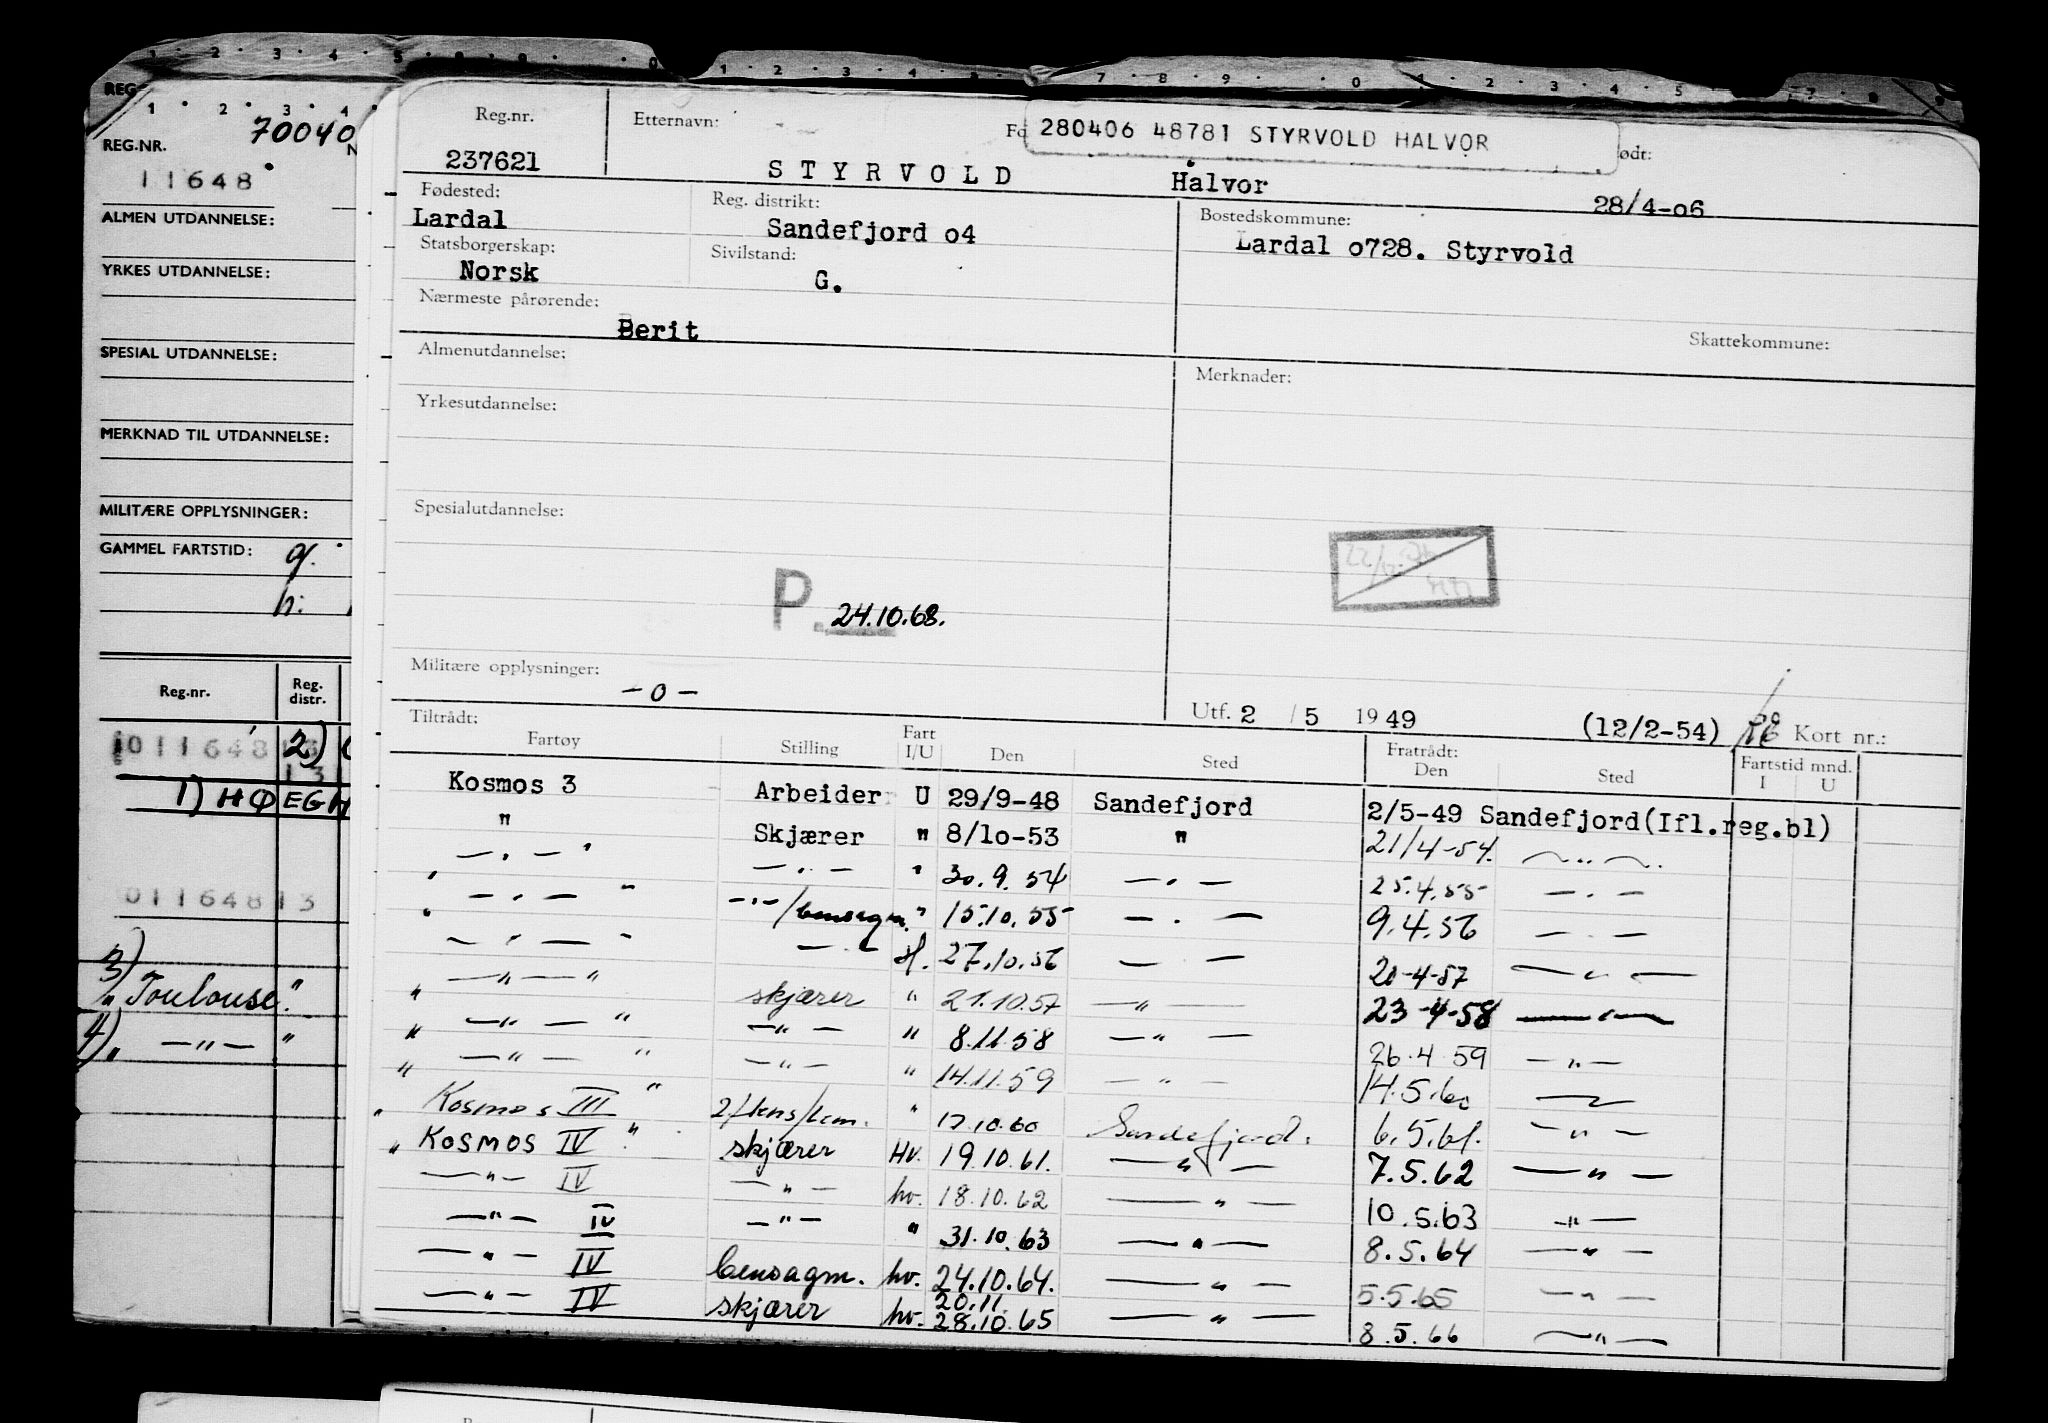 REG.NR.
70040
11648
ALMEN UTDANNELSE:
YRKES UTDANNELSE:
SPESIAL UTDANNELSE:
MERKNAD TIL UTDANNELSE:
MILITÆRE OPPLYSNINGER:
GAMMEL FARTSTID: g.
h:
Reg.nr. Reg. distr.
011648 13 2)
13
1) HØEGH
011648 13
3)
" Toulouse "
4) " —"— "
Reg.nr. Etternavn: 280406 48781 STYRVOLD HALVOR ødt:
237621 STYRVOLD Halvor 28/4-o6
Fødested: Reg. distrikt: Bostedskommune:
Lardal Sandefjord o4 Lardal o728. Styrvold
Statsborgerskap: Sivilstand:
Norsk G.
Nærmeste pårørende:
Berit Skattekommune:
Almenutdannelse: Merknader:
Yrkesutdannelse:
Spesialutdannelse:
P. 24.10.68.
Militære opplysninger:
-o-
Utf. 2 / 5 19 49 (12/2-54) Kort nr.:
Tiltrådt: Fratrådt: Fartstid mnd.
Fartøy Stilling Fart I/U Den Sted Den Sted I U
Kosmos 3 Arbeider U 29/9-48 Sandefjord 2/5-49 Sandefjord(Ifl.reg.bl)
" Skjærer " 8/10-53 " 21/4-54. —"—
—"— " —"— " 30.9.54 —"— 25.4.55 —"—
" —"— " —"—/bensagm. " 15.10.55 —"— 9.4.56 —"—
" —"— " —"— 27.10.56 —"— 20-4-57 —"—
—"— " skjærer " 21.10.57 —"— 23-4-58 —"—
" —"— " —"— " 8.11.58 —"— 26.4.59 —"—
" —"— " —"— " 14.11.59 —"— 14.5.60 —"—
" Kosmos III " " 17.10.60 Sandefjord. 6.5.61. —"—
" KOSMOS IV " skjærer Hv. 19.10.61. —"— 7.5.62 —"—
" —"— IV —"— hv. 18.10.62 —"— 10.5.63 —"—
—"— IV —"— " 31.10.63 —"— 8.5.64 —"—
—"— IV bensagm. hv. 24.10.64. —"— 5.5.65 —"—
20.11.
—"— IV skjærer hv. 28.10.65 —"— 8.5.66 —"—